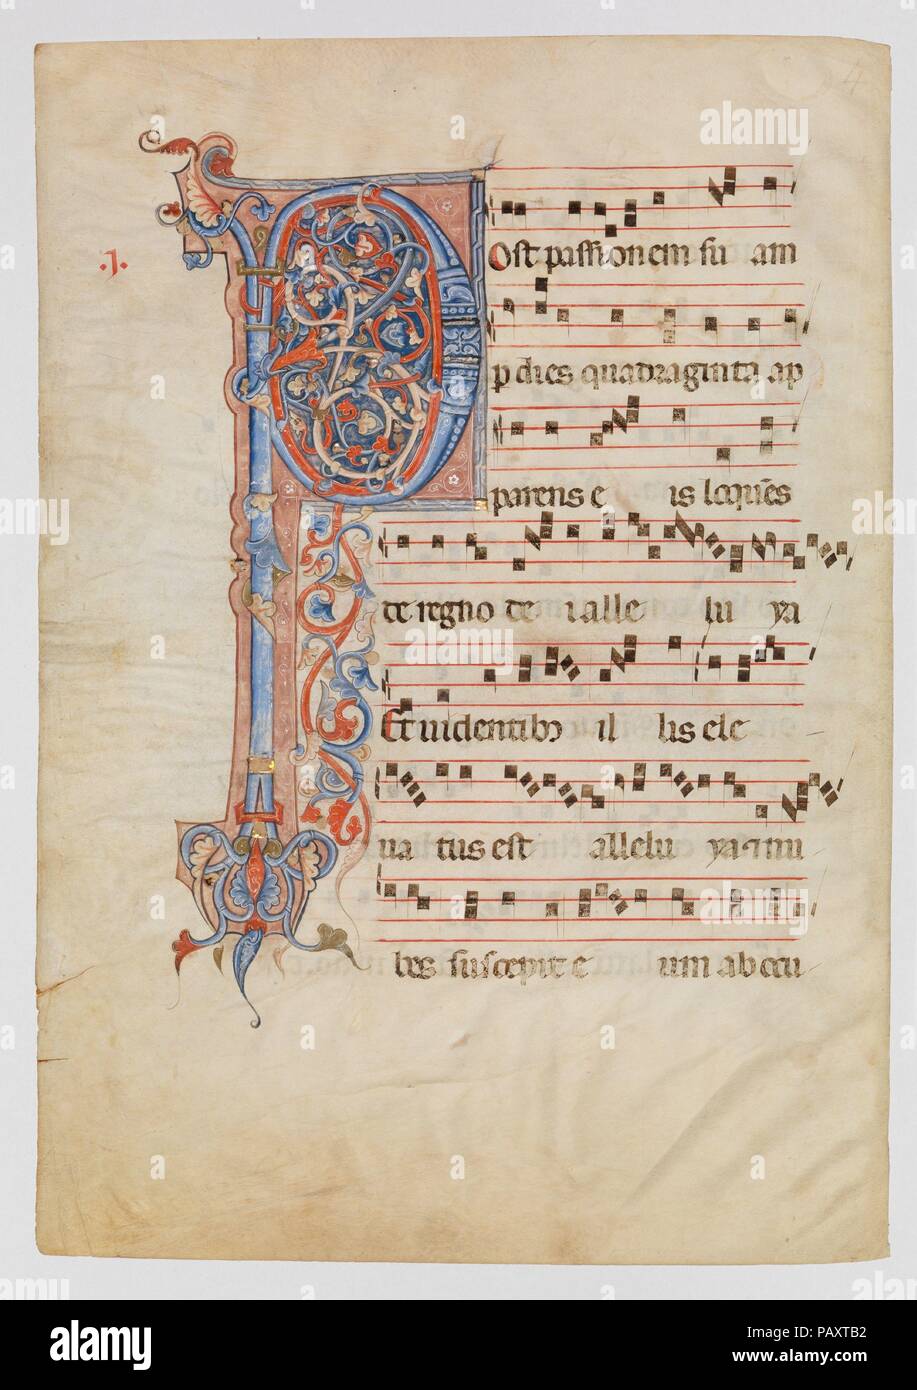 4
.j.
Post passionem suam
p dies quadraginta ap
parens eis loquēs
de regno dei alleluya
Et uidentibꝰ illis ele
uatus est alleluya ⁊ nu
bes suscepit eum ab ocu
alamy
Image ID: PAXTB2
www.alamy.com